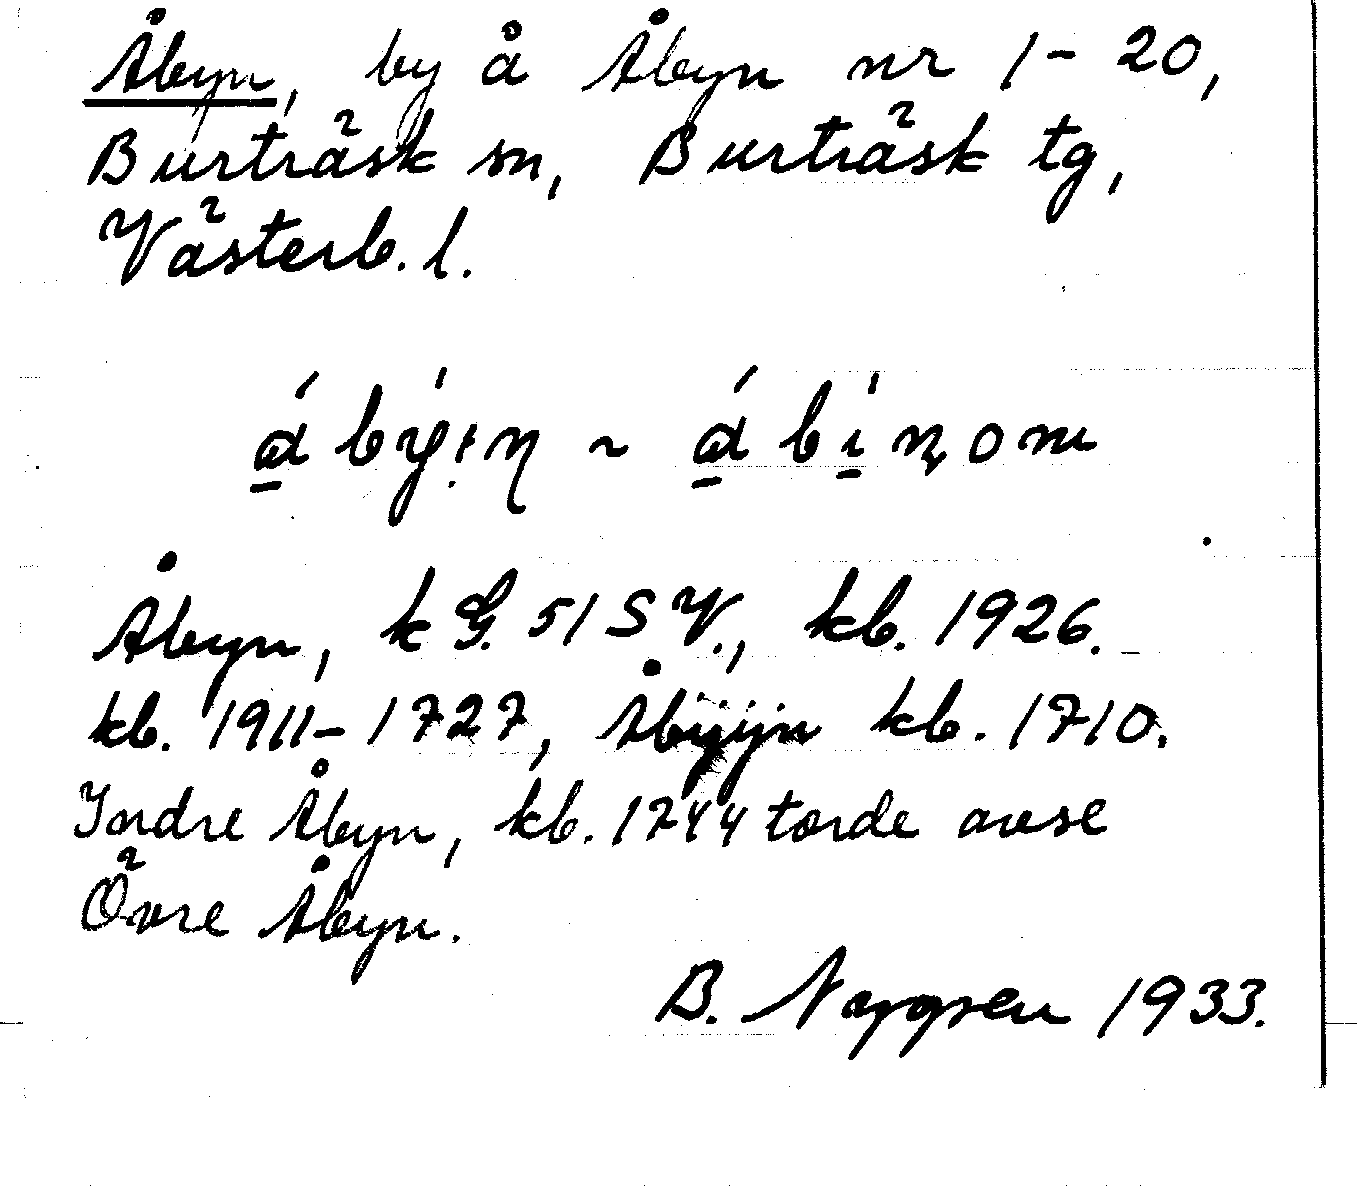 Åbyn, by å Åbyn nr 1 - 20,
Burträsk sn, Burträsk tg,
Västerb. l.
Åbyn, k G. 51 S V., kb. 1926.
kb. 1911-1727, Åbyijn kb. 1710.
Indre Åbyn, kb. 1744 torde avse
Övre Åbyn.
B. 1933.